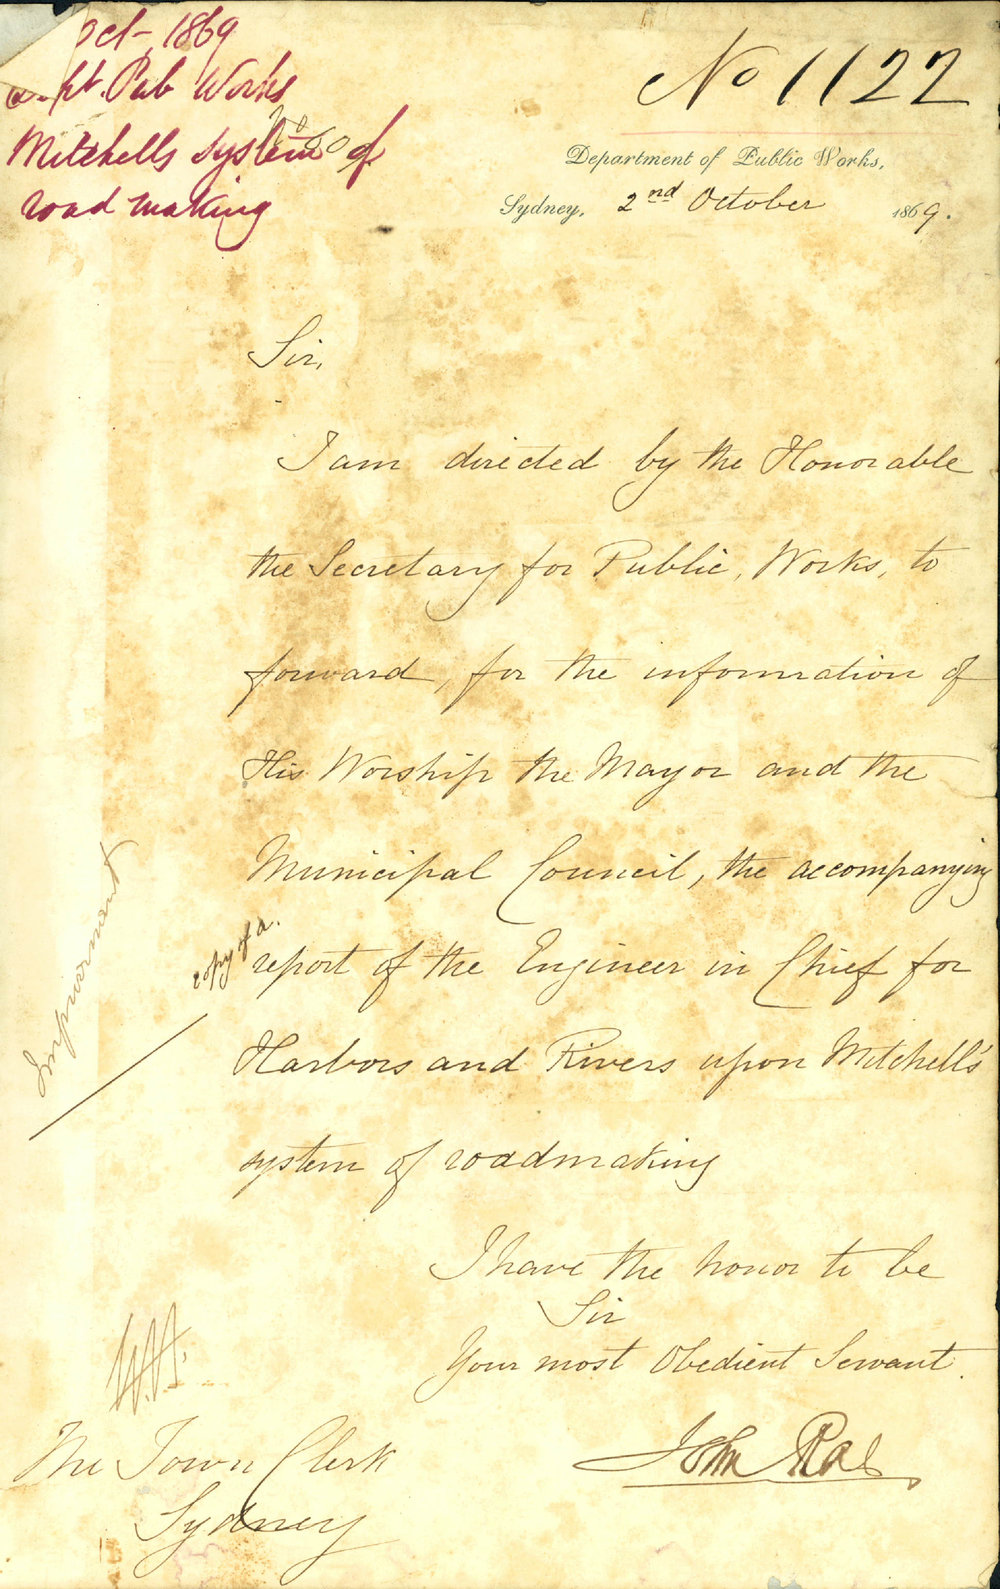 Oct, 1869
Pub Works
Mitchells system of
road making
No 1122
Department of Public Works,
Sydney, 2nd October 1869.
Sir,
I am directed by the Honorable
the Secretary for Public, Works, to
forward, for the information of
His Worship the Mayor and the
Municipal Council, the accompanying
copy of a
report of the Engineer in Chief for
Harbors and Rivers upon Mitchell's
system of roadmaking
I have the honor to be
Sir
Your most Obedient Servant.
John Rae
The Town Clerk
Sydney